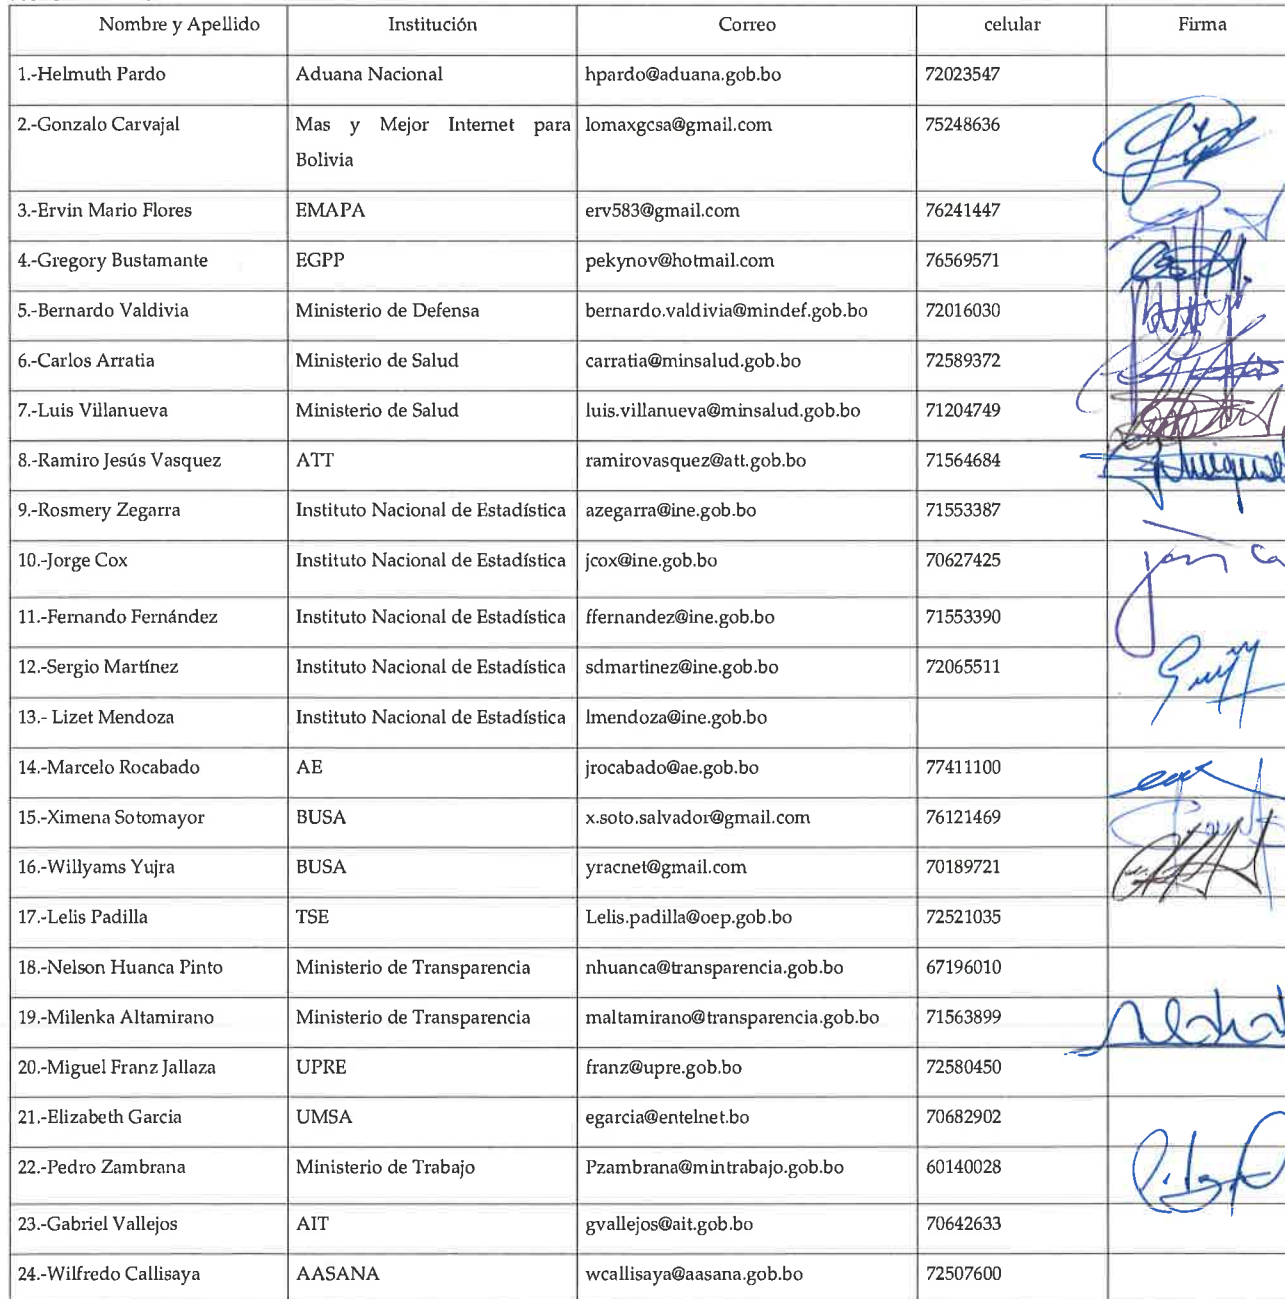 Nombre y Apellido Institución Correo celular Firma
1.-Helmuth Pardo Aduana Nacional hpardo@aduana.gob.bo 72023547
2.-Gonzalo Carvajal Mas y Mejor Internet para lomaxgcsa@gmail.com 75248636
Bolivia
3.-Ervin Mario Flores EMAPA erv583@gmail.com 76241447
4.-Gregory Bustamante EGPP pekynov@hotmail.com 76569571
5.-Bernardo Valdivia Ministerio de Defensa bernardo.valdivia@mindef.gob.bo 72016030
6.-Carlos Arratia Ministerio de Salud carratia@minsalud.gob.bo 72589372
7.-Luis Villanueva Ministerio de Salud luis.villanueva@minsalud.gob.bo 71204749
8.-Ramiro Jesús Vasquez ATT ramirovasquez@att.gob.bo 71564684
9.-Rosmery Zegarra Instituto Nacional de Estadística azegarra@ine.gob.bo 71553387
10.-Jorge Cox Instituto Nacional de Estadística jcox@ine.gob.bo 70627425
11.-Fernando Fernández Instituto Nacional de Estadística ffernandez@ine.gob.bo 71553390
12.-Sergio Martínez Instituto Nacional de Estadística sdmartinez@ine.gob.bo 72065511
13.- Lizet Mendoza Instituto Nacional de Estadística lmendoza@ine.gob.bo
14.-Marcelo Rocabado AE jrocabado@ae.gob.bo 77411100
15.-Ximena Sotomayor BUSA x.soto.salvador@gmail.com 76121469
16.-Willyams Yujra BUSA yracnet@gmail.com 70189721
17.-Lelis Padilla TSE Lelis.padilla@oep.gob.bo 72521035
18.-Nelson Huanca Pinto Ministerio de Transparencia nhuanca@transparencia.gob.bo 67196010
19.-Milenka Altamirano Ministerio de Transparencia maltamirano@transparencia.gob.bo 71563899
20.-Miguel Franz Jallaza UPRE franz@upre.gob.bo 72580450
21.-Elizabeth Garcia UMSA egarcia@entelnet.bo 70682902
22.-Pedro Zambrana Ministerio de Trabajo Pzambrana@mintrabajo.gob.bo 60140028
23.-Gabriel Vallejos AIT gvallejos@ait.gob.bo 70642633
24.-Wilfredo Callisaya AASANA wcallisaya@aasana.gob.bo 72507600